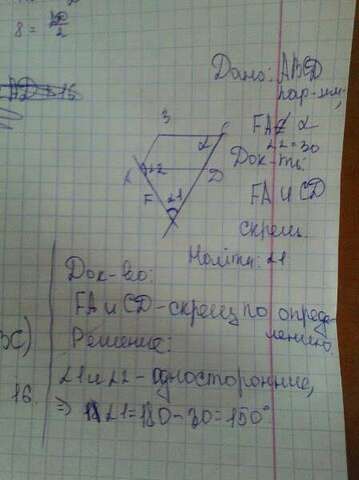 8 = 
Дано: ABCD
пар-мм,
FA⊄ α
∠2=30
Док-ть:
FA и CD
скрещ.
Найти: ∠1
α
D
A
∠2
F
∠1
Док-во:
FA и CD - скрещ по опреде-
лению
Решение:
∠1 и ∠2 - односторонние,
16.
⇒ ∠1=180-30=150°